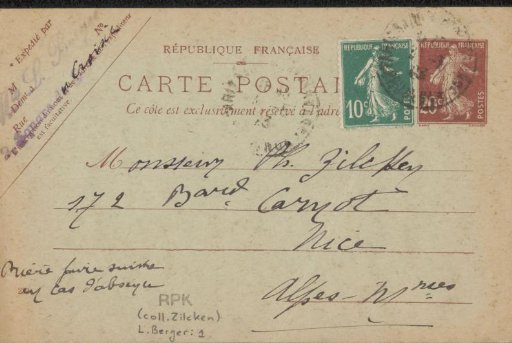 Expédié par
M
Rue
N°
en facultative
RÉPUBLIQUE FRANÇAISE
CARTE POSTA
Ce côté est exclusivement réservé à l'adre
REPUBLIQUE FRANÇAISE
10 c
POSTES
REPUBLIQUE FRANÇAISE
20 c
POSTES
Monsieur Ph. Zilcken
172 Bard Carnot
Nice
Alpes-Mmes
Prière faire suivre
en cas d'absence
RPK
(coll. Zilcken)
L. Berger: 1